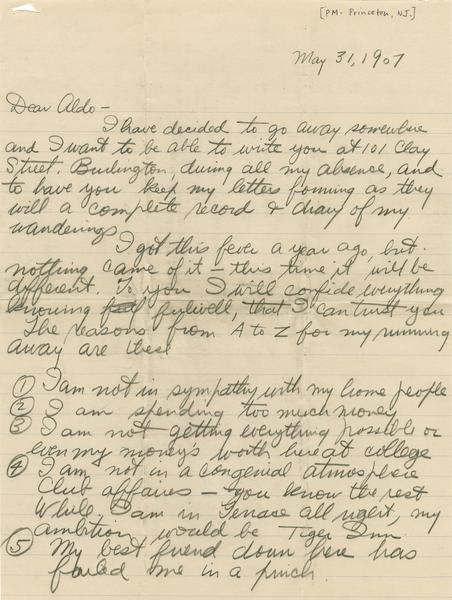 [PM - Princeton, N.J.]
May 31, 1907
Dear Aldo -
I have decided to go away somewhere
and I want to be able to write you at 101 Clay
Street, Burlington, during all my absence, and
to have you keep my letters forming as they
will a complete record & diary of my
wanderings.
I got this fever a year ago, but
nothing came of it - this time it will be
different. To you I will confide everything
knowing full fullwell, that I can trust you
The reasons from A to Z for my running
away are these
1 I am not in sympathy with my home people
2 I am spending too much money
3 I am not getting everything possible or
even my money's worth here at college
4 I am not in a congenial atmosphere
Club affairs - you know the rest
While I am in Terrace all right, my
ambition would be Tiger Inn
5 My best friend down here has
failed me in a pinch.